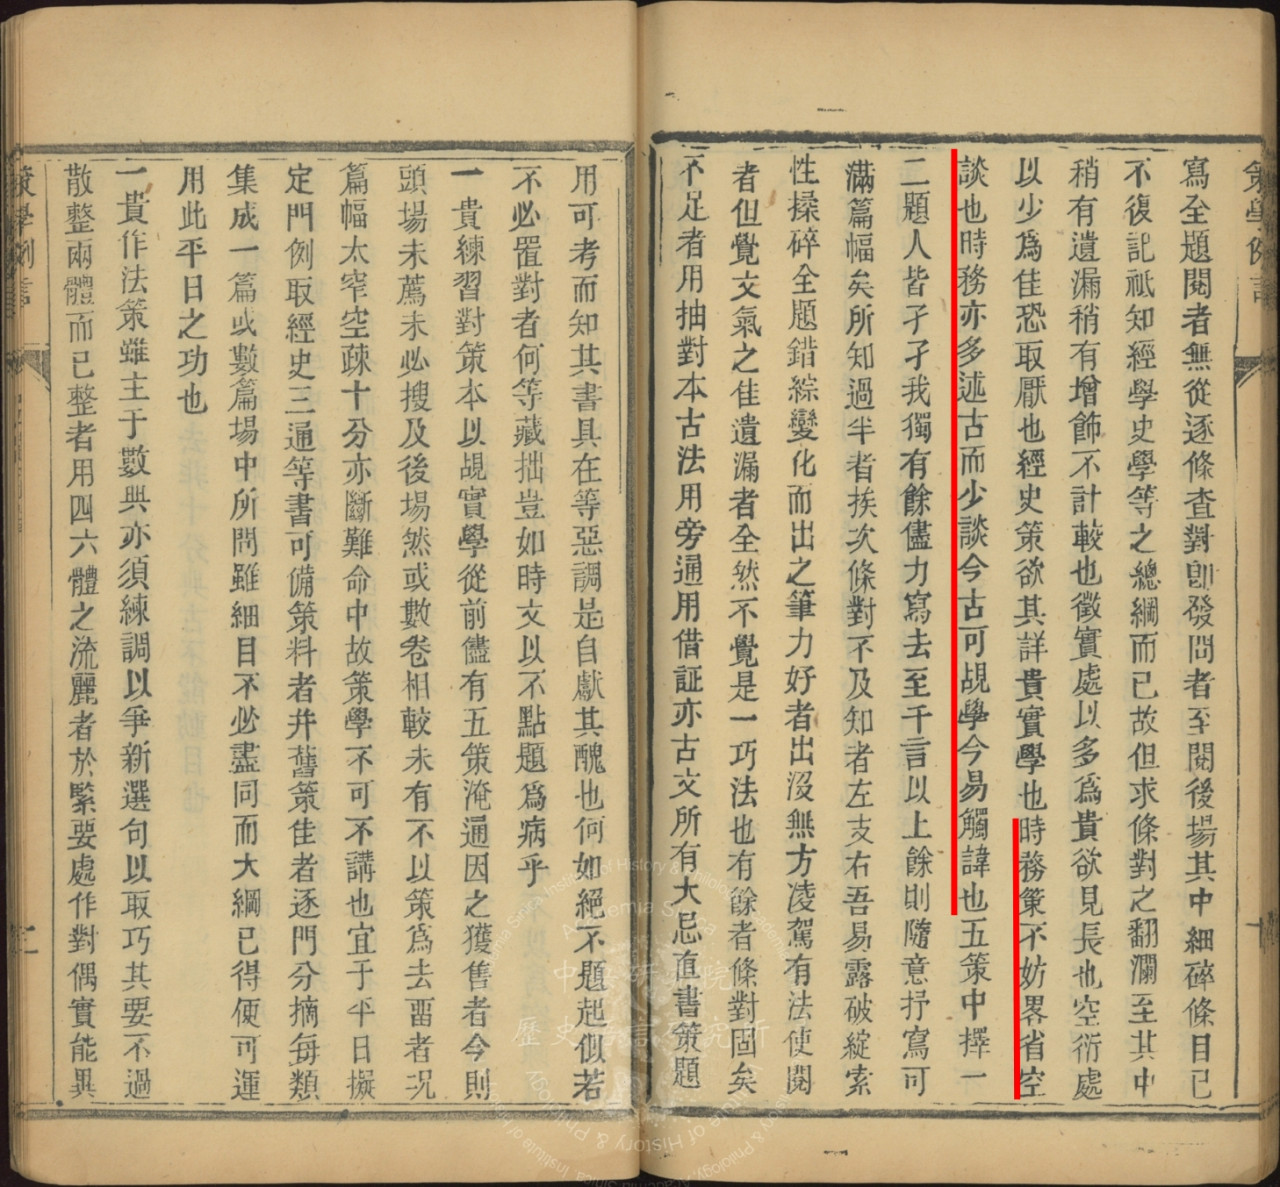 寫至題閱者無從逐條查對卽發問者至閱後場其中細碎條目已
不復記祗知經學史學等之總綱而已故但求條對之翻瀾至其中
稍有遺漏稍有增飾不計較也徵實處以多爲貴欲見長也空衍處
以少爲佳恐取厭也經史策欲其詳貴實學也時務策不妨畧省空
談也時務亦多述古而少談今古可覘學今易觸諱也五策中擇一
二題人皆孑孑我獨有餘儘力寫去至千言以上餘則隨意抒寫可
滿篇幅矣所知過半者挨次條對不及知者左支右吾易露破綻索
性揉碎全題錯綜變化而出之筆力好者出沒無方凌駕有法使閱
者但覺文氣之佳遺漏者全然不覺是一巧法也有餘者條對固矣
不足者用抽對本古法用旁通用借証亦古文所有大忌直書策題
用可考而知其書具在等惡調是自獻其醜也何如絕不題起似若
不必置對者何等藏拙豈如時文以不點題爲病乎
一貴練習對策本以覘實學從前儘有五策淹通因之獲售者今則
頭場未薦未必搜及後場然或數卷相較未有不以策爲去畱者况
篇幅太窄空疎十分亦斷難命中故策學不可不講也宜于平日擬
定門例取經史三通等書可備策料者幷舊策佳者逐門分摘每類
集成一篇或數篇場中所問雖細目不必盡同而大綱已得便可運
用此平日之功也
一貴作法策雖主于數典亦須練調以爭新選句以取巧其要不過
散整兩體而已整者用四六體之流麗者於緊要處作對偶實能異
策學例言
中央研究院
歷史語言研究所